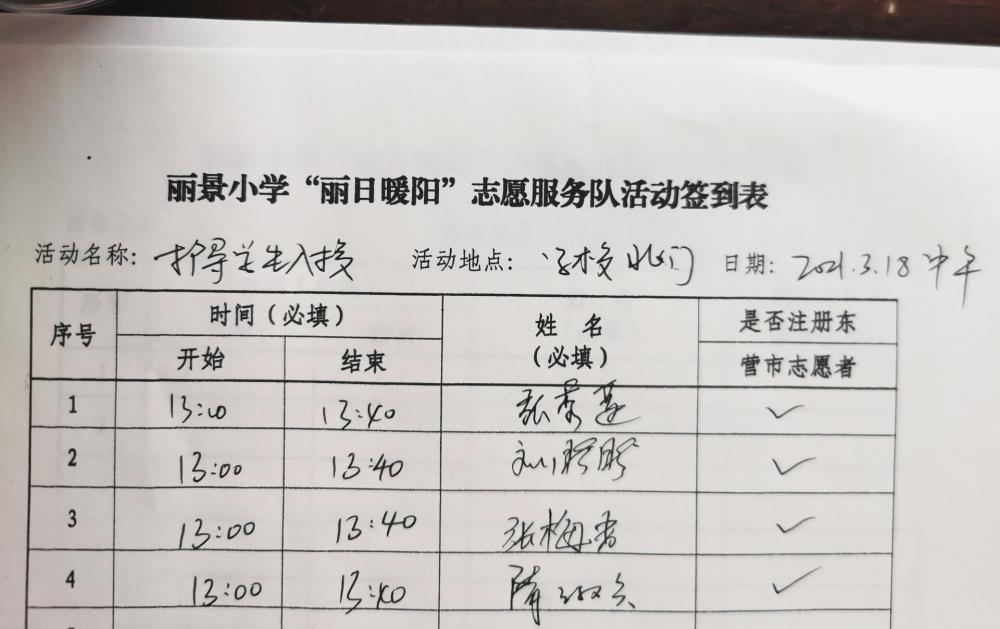 丽景小学“丽日暖阳”志愿服务队活动签到表
活动名称：护导学生入校 活动地点：学校北门 日期：2021.3.18中午
序号 时间（必填） 姓名（必填） 是否注册东营市志愿者
开始 结束
1 13:00 13:40 张 ✓
2 13:00 13:40 刘 ✓
3 13:00 13:40 张梅香 ✓
4 13:00 13:40 隋 ✓